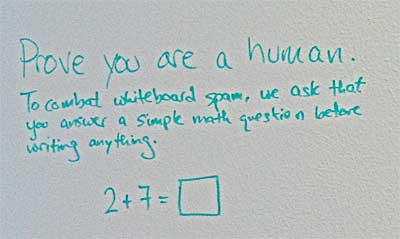 Prove you are a human.
To combat whiteboard spam, we ask that
you answer a simple math question before
writing anything.
2+7=